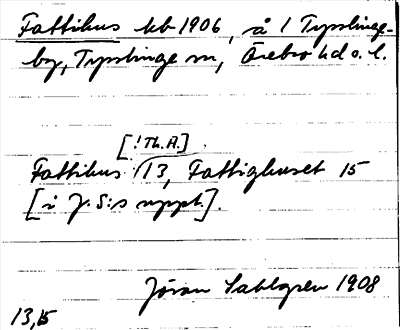 Fattihus kb 1906, å 1 Tysslinge-
by, Tysslinge sn, Örebro hd o. l.
[! Th. A.].
Fattihus 13, Fattighuset 15
[i J. S:s uppt.].
Jöran Sahlgren 1908
13,15